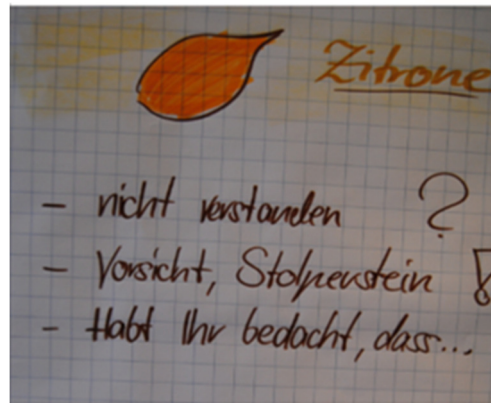 Zitrone
- nicht verstanden ?
- Vorsicht, Stolperstein !
- Habt Ihr bedacht, dass...